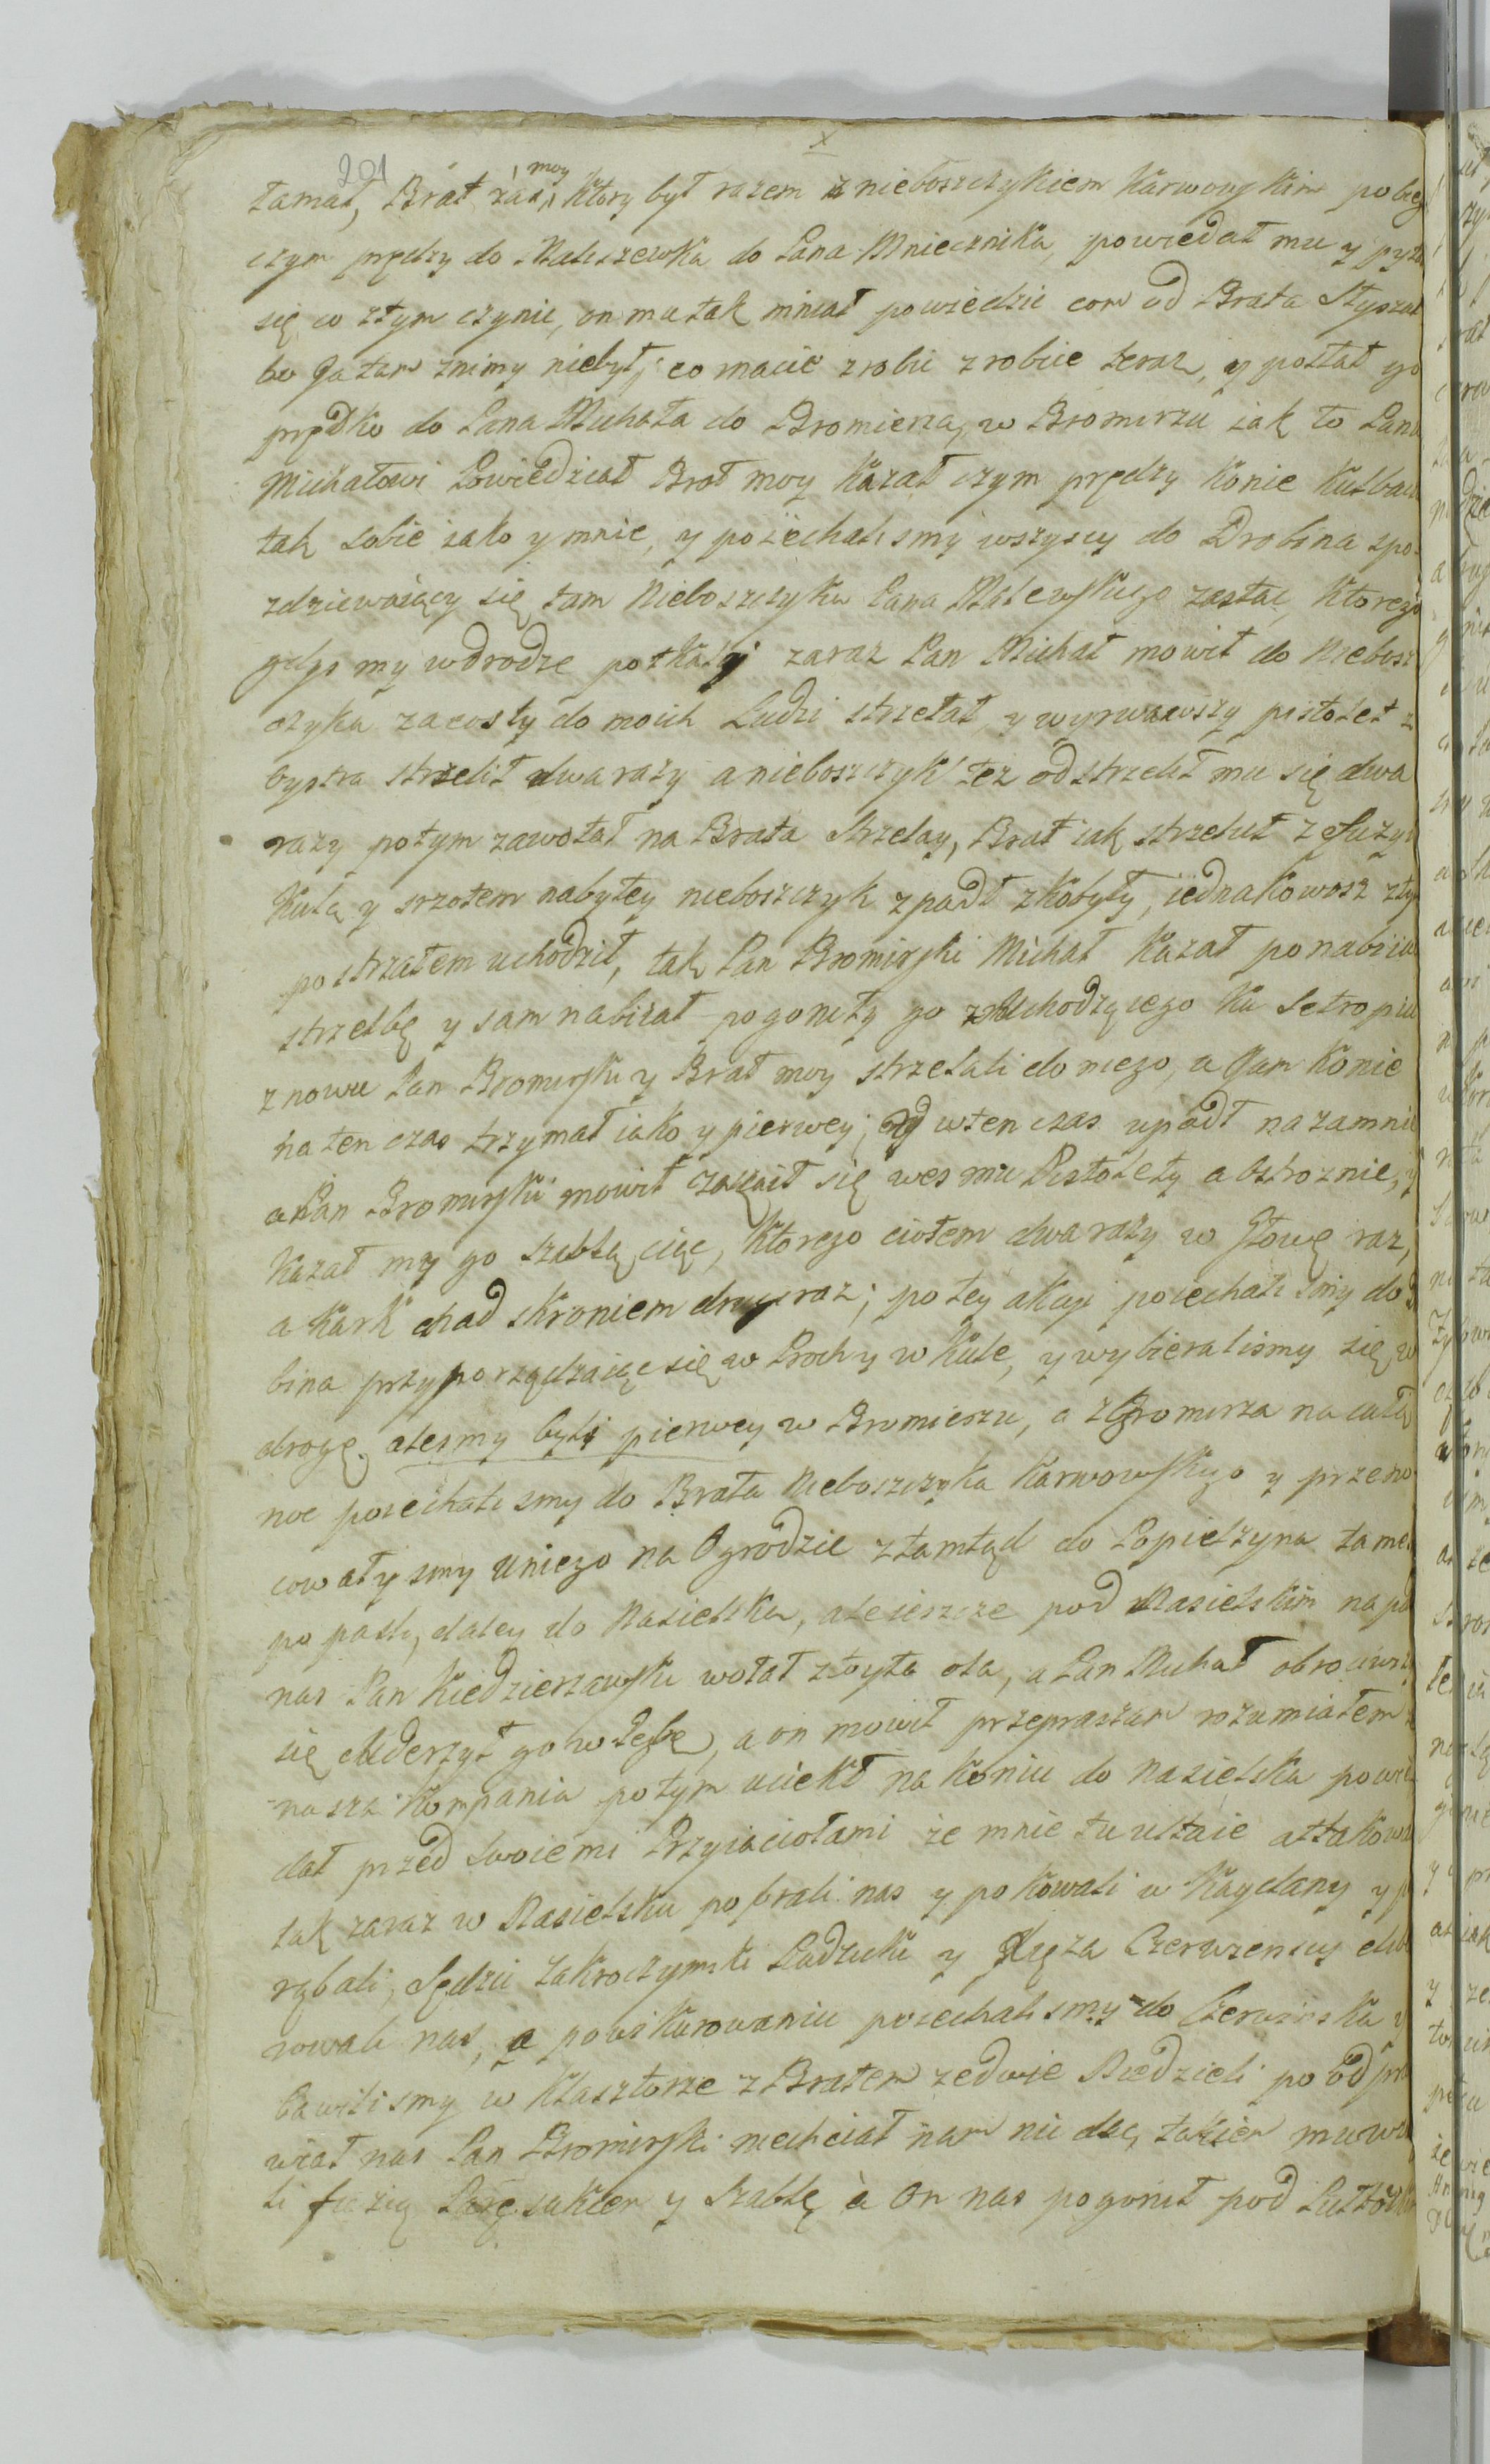 x
201
tamat, Brat zaś moy Ktory był razem z nieboszczykiem Karwowskim pobieg
czym prędzy do Maliszewka do Pana Miecznika, powiedał mu y pyta
się co ztym czynic, on mu tak mniał powiedzic com od Brata słyszał
bo Ja tam znimy niebył, co macie zrobic zrobcie teraz, y posłał go
prędko do Pana Michała do Bromierza, w Bromirzu iak to Panu
Michałowi Powiedział Brat moy Kazał czym prędzy Konie Kulbacz
tak sobie iako y mnie, y poiechalismy wszyscy do Drobina spo-
zdziewaiący się tam Nieboszczyka Pana Malewskiego zastac, Ktorego
gdysmy wdrodze potkali zaraz Pan Michał mowił do Niebosz
czyka zacosty do moich Ludzi strzelał, y wyrwawszy pistolet z
bystra strzelił dwa razy a nieboszczyk też odstrzelił mu się dwa
razy potym zawołał na Brata Strzelay, Brat iak strzelił z Fuzyi
Kulą y szrotem nabytey nieboszczyk zpadł zKobyły, iednakowosz zty
postrzałem uchodził, tak Pan Bromirski Michał Kazał ponabiia
strzelbę y sam nabiiał pogonily go uchodzącego Ku Setropiu
znowu Pan Bromirski y Brat moy strzelali do niego, a Jam Konie
na ten czas trzymał iako y pierwey; wtenczas upadł nazamnie
a Pan Bromirski mowił zaczaił się wes mu Pistolety a Ostroznie, y
Kazał my go szablą ciąc, Ktorego ciołem dwa razy w Głowę raz,
a Kark nad skroniem drugi raz; po tey akcyi poiechalismy do D
bina przyporządzaiąc się w Prochy w Kule, y wybieralismy się w
drogę, alesmy byli pierwey w Bromierzu, a zBromirza na całą
noc poiechalismy do Brata Nieboszczyka Karwowskiego y przeno
cowałysmy uniego na Ogrodzie ztamtąd do Popielzyna tame
popasli, daley do Nasielska, ale ieszcze pod Nasielskim napa
nas Pan Kiedzierzawski wołał złoyta ola, a Pan Michał obrociwszy
się Uderzył go w Łeb, a on mowił przepraszam rozumiałem
nasza Kompania potym uciekł na Koniu do Nasielska powie
dał przed swoiemi Przyiaciołami że mnie tu attakow
tak zaraz w Nasielsku pobrali nas y pokowali w Kaydany y p
rąbali, Sędzii Zakroczymski Ludzicki y Xięza Czerwienscy
rowali nas, a powikurowaniu poiechalismy do Czerwinska y
bawilismy w Klasztorze z Bratem ze dwie Niedzieli po odpra
wiał nas Pan Bromirski niechciał nam nic dac, takiem mu wz
li fuzią Parę sukien y Szablę à On nas pogonił pod